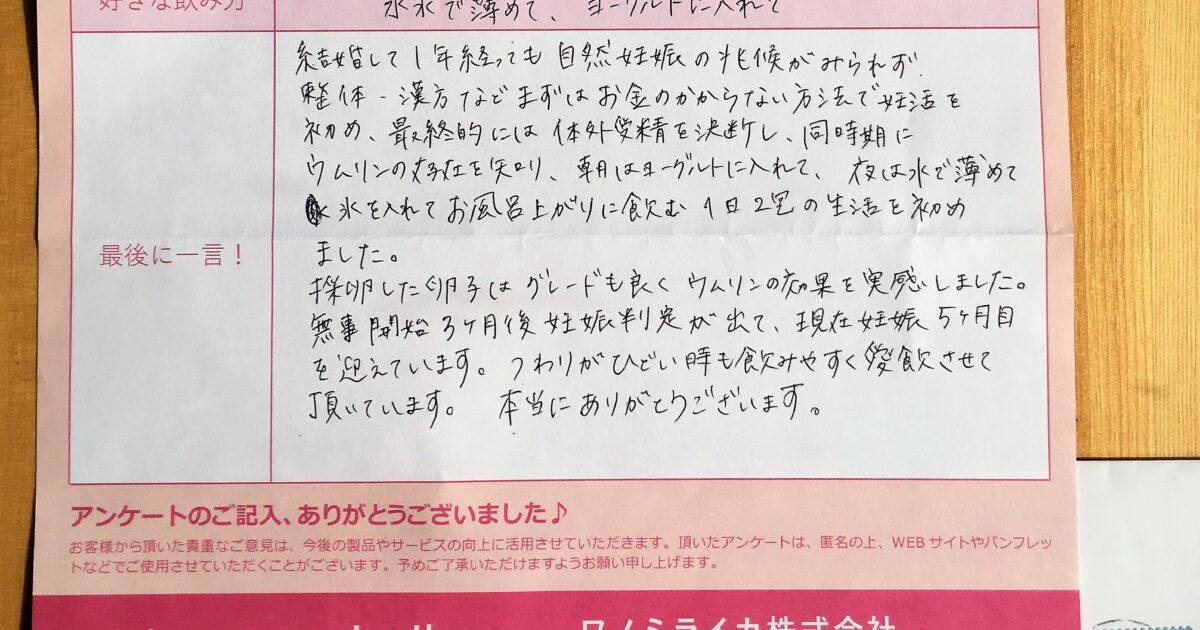 好きな飲み方
氷水で薄めて、ヨーグルトに入れて
結婚して1年経っても自然妊娠の兆候がみられず、
整体・漢方などまずはお金のかからない方法で妊活を
初め、最終的には体外受精を決断し、同時期に
ウムリンの存在を知り、朝はヨーグルトに入れて、夜は水で薄めて
氷を入れてお風呂上がりに飲む1日2宝の生活を初め
最後に一言!
ました。
採卵した卵子はグレードも良くウムリンの効果を実感しました。
無事開始3ヶ月後妊娠判定が出て、現在妊娠5ヶ月目
を迎えています。つわりがひどい時も飲みやすく愛飲させて
頂いています。 本当にありがとうございます。
アンケートのご記入、ありがとうございました♪
お客様から頂いた貴重なご意見は、今後の製品やサービスの向上に活用させていただきます。頂いたアンケートは、匿名の上、WEBサイトやパンフレッ
トなどでご使用させていただくことがございます。予めご了承いただけますようお願い申し上げます。
ワノミライカ株式会社